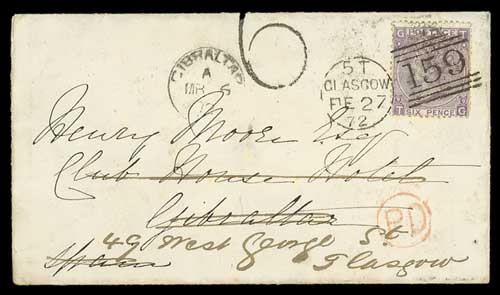 GIBRALTAR
A
MR
6
5 T
GLASGOW
FE 27
72
159
G POSTAGE T
T SIX PENCE G
Henry Moore Esq
Club House Hotel
Gibraltar
Spain
49 West George St.
Glasgow
PD